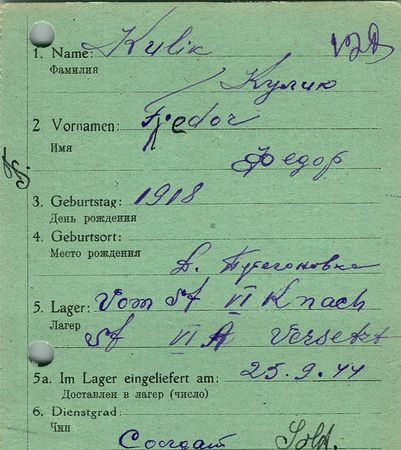 1. Name: Kulik
Фамилия
Кулик
2. Vornamen: Fjedor
Имя
Федор
3. Geburtstag: 1918
День рождения
4. Geburtsort:
Место рождения
д.
5. Lager: Vom St VI K nach
Лагер
St VI A Versetzt
5a. Im Lager eingeliefert am: 25.9.44
Доставлен в лагер (число)
6. Dienstgrad:
Чин
Солдат Sold.